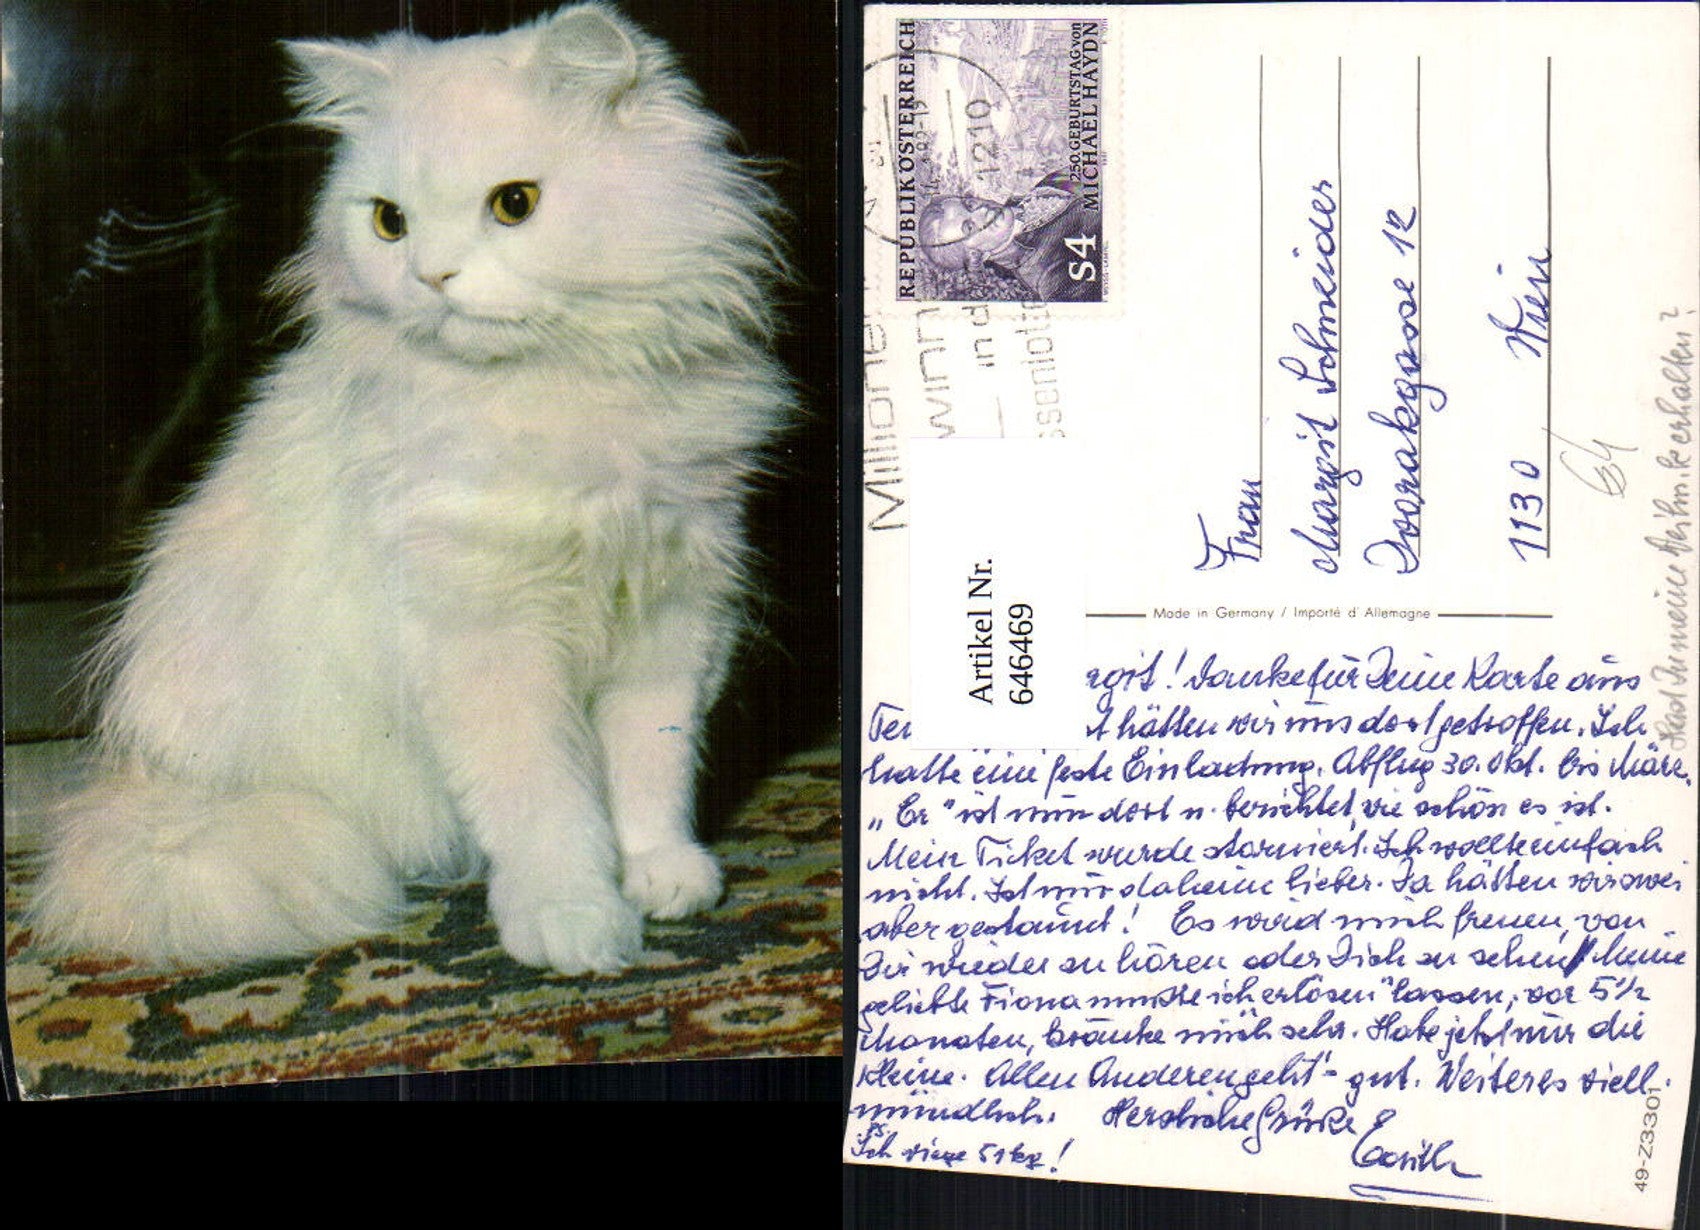 REPUBLIK ÖSTERREICH
250. GEBURTSTAG von
MICHAEL HAYDN
S4
1210
Millione
winn
in d
ssenlott
Artikel Nr.
646469
Frau
Margit Schneider
Dvorakgasse 12
1130 Wien
64
Made in Germany / Importé d'Allemagne
Hast Du meine Weihn.k. erhalten?
rgit! Danke für Deine Karte aus
Ter t hätten wir uns dort getroffen. Ich
hatte eine feste Einladung. Abflug 30. Okt. bis März.
„Er" ist nun dort u. berichtet, wie schön es ist.
Mein Ticket wurde storniert. Ich wollte einfach
nicht. Ist mir daheim lieber. Da hätten wir zwei
aber gestaunt! Es wird mich freuen, von
Dir wieder zu hören oder Dich zu sehen! Meine
geliebte Fiona musste ich "erlösen" lassen, vor 5 1/2
Monaten, kränke mich sehr. Habe jetzt nur die
Kleine. Allen Anderen geht's gut. Weiteres viell.
mündlich. Herzliche Grüße
Edith
PS.
Ich wiege 51 kg!
49-Z3301